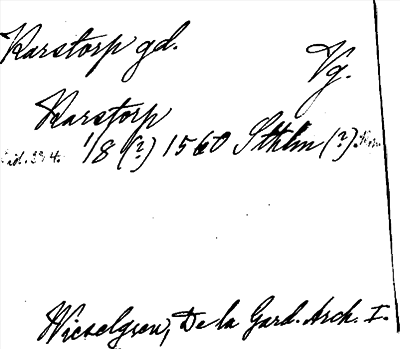 Karstorp gd.
Vg.
Karstorp
1/8 (?) 1560 Sthlm (?).
Wieselgren, De la Gard. Arch. I.